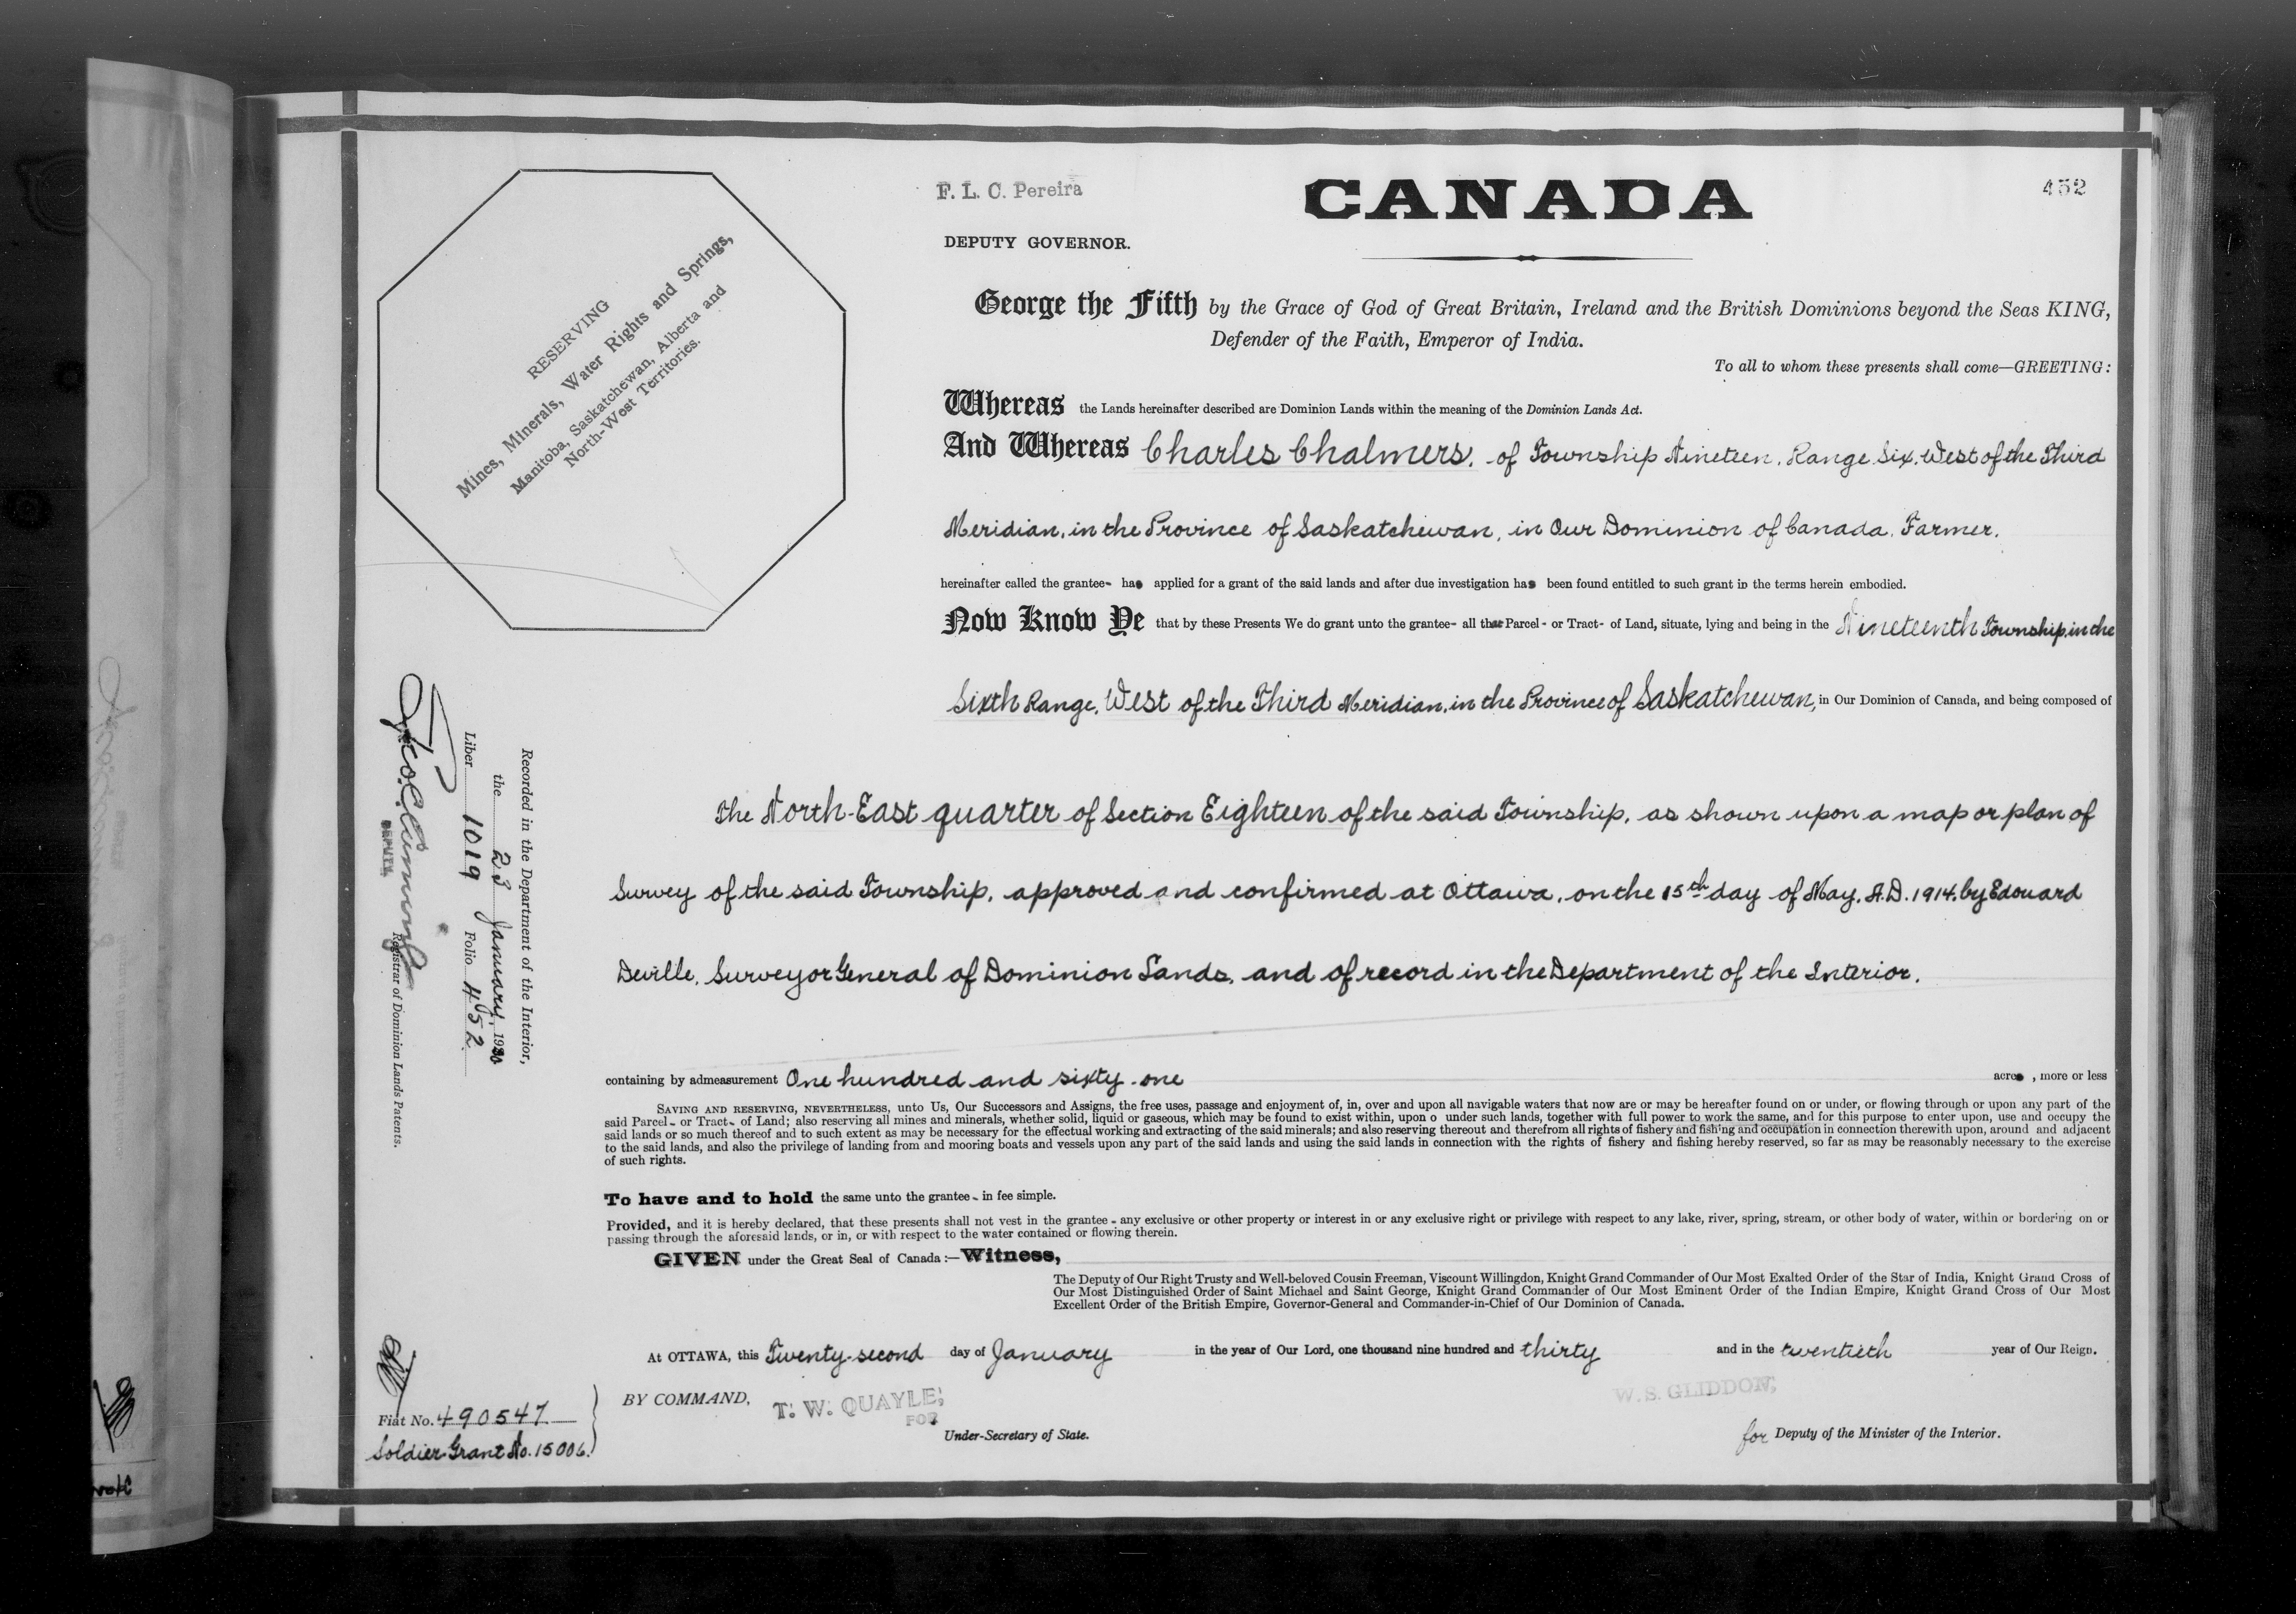 F. L. C. Pereira
DEPUTY GOVERNOR.
CANADA
452
RESERVING
Mines, Minerals, Water Rights and Springs,
Manitoba, Saskatchewan, Alberta and
North-West Territories.
George the Fifth by the Grace of God of Great Britain, Ireland and the British Dominions beyond the Seas KING,
Defender of the Faith, Emperor of India.
To all to whom these presents shall come—GREETING:
Whereas the Lands hereinafter described are Dominion Lands within the meaning of the Dominion Lands Act.
And Whereas Charles Chalmers, of Township Nineteen, Range Six, West of the Third
Meridian, in the Province of Saskatchewan, in Our Dominion of Canada, Farmer,
hereinafter called the grantee- has applied for a grant of the said lands and after due investigation has been found entitled to such grant in the terms herein embodied.
Now Know Ye that by these Presents We do grant unto the grantee- all that Parcel- or Tract- of Land, situate, lying and being in the Nineteenth Township, in the
Sixth Range, West of the Third Meridian, in the Province of Saskatchewan, in Our Dominion of Canada, and being composed of
The North-East quarter of Section Eighteen of the said Township, as shown upon a map or plan of
Survey of the said Township, approved and confirmed at Ottawa, on the 15th day of May, A.D. 1914, by Edouard
Deville, Surveyor General of Dominion Lands, and of record in the Department of the Interior,
containing by admeasurement One hundred and sixty-one acres, more or less
SAVING AND RESERVING, NEVERTHELESS, unto Us, Our Successors and Assigns, the free uses, passage and enjoyment of, in, over and upon all navigable waters that now are or may be hereafter found on or under, or flowing through or upon any part of the
said Parcel- or Tract- of Land; also reserving all mines and minerals, whether solid, liquid or gaseous, which may be found to exist within, upon o under such lands, together with full power to work the same, and for this purpose to enter upon, use and occupy the
said lands or so much thereof and to such extent as may be necessary for the effectual working and extracting of the said minerals; and also reserving thereout and therefrom all rights of fishery and fishing and occupation in connection therewith upon, around and adjacent
to the said lands, and also the privilege of landing from and mooring boats and vessels upon any part of the said lands and using the said lands in connection with the rights of fishery and fishing hereby reserved, so far as may be reasonably necessary to the exercise
of such rights.
To have and to hold the same unto the grantee- in fee simple.
Provided, and it is hereby declared, that these presents shall not vest in the grantee- any exclusive or other property or interest in or any exclusive right or privilege with respect to any lake, river, spring, stream, or other body of water, within or bordering on or
passing through the aforesaid lands, or in, or with respect to the water contained or flowing therein.
GIVEN under the Great Seal of Canada:—Witness,
The Deputy of Our Right Trusty and Well-beloved Cousin Freeman, Viscount Willingdon, Knight Grand Commander of Our Most Exalted Order of the Star of India, Knight Grand Cross of
Our Most Distinguished Order of Saint Michael and Saint George, Knight Grand Commander of Our Most Eminent Order of the Indian Empire, Knight Grand Cross of Our Most
Excellent Order of the British Empire, Governor-General and Commander-in-Chief of Our Dominion of Canada.
At OTTAWA, this Twenty-second day of January in the year of Our Lord, one thousand nine hundred and thirty and in the twentieth year of Our Reign.
BY COMMAND,
T. W. QUAYLE,
FOR
Under-Secretary of State.
W. S. GLIDDON,
for Deputy of the Minister of the Interior.
Fiat No. 490547
Soldier Grant No. 15006.
Recorded in the Department of the Interior,
the 23 January, 1930
Liber 1019 Folio 452
DEPUTY
Registrar of Dominion Lands Patents.